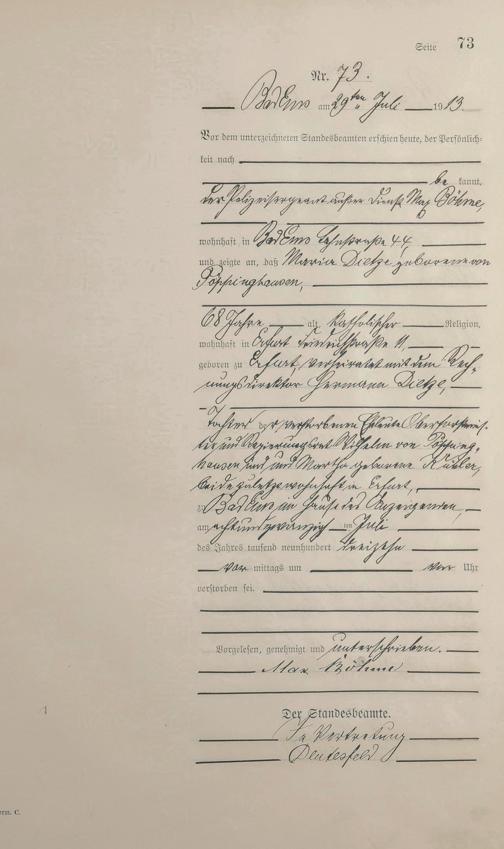 Seite 73
Nr. 73.
Bad Ems am 29ten Juli 1913.
Vor dem unterzeichneten Standesbeamten erschien heute, der Persönlich-
keit nach
be kannt,
der Polizeisergeant außer Dienst Max Böhme,
wohnhaft in Bad Ems Lahnstraße 44,
und zeigte an, daß Maria Dietze geborene von
Pöppinghausen,
68 Jahre alt, katholischer Religion,
wohnhaft in Erfurt Friedrichstraße 11,
geboren zu Erfurt, verheiratet mit dem Rech-
nungsdirektor Hermann Dietze,
Tochter der verstorbenen Eheleute Oberforstmeis-
ter und Regierungsrat Wilhelm von Pöpping-
hausen und Martha geborene
beide zuletzt wohnhaft in Erfurt,
zu Bad Ems im Hause des Anzeigenden,
am achtundzwanzig ten Juli
des Jahres tausend neunhundert dreizehn
vor mittags um Uhr
verstorben sei.
Vorgelesen, genehmigt und unterschrieben.
Max Böhme
Der Standesbeamte.
In Vertretung